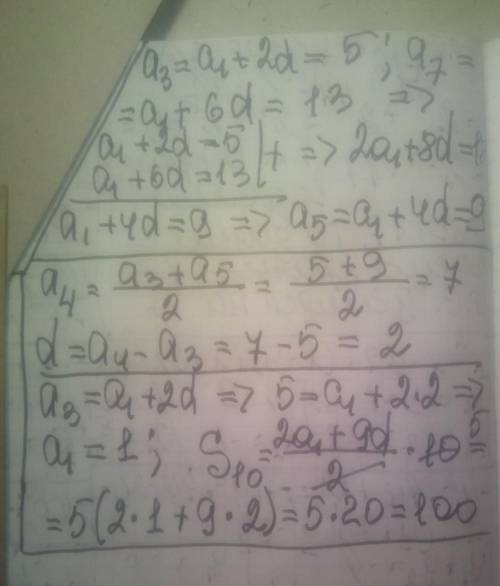 a₃ = a₁ + 2d = 5 ; a₇ =
= a₁ + 6d = 13 =>
a₁ + 2d = 5
a₁ + 6d = 13 | + => 2a₁ + 8d =
a₁ + 4d = 9 => a₅ = a₁ + 4d = 9
a₄ = (a₃ + a₅)/2 = (5 + 9)/2 = 7
d = a₄ - a₃ = 7 - 5 = 2
a₃ = a₁ + 2d => 5 = a₁ + 2·2 =>
a₁ = 1 ; S₁₀ = (2a₁ + 9d)/2 · 10 5 =
= 5(2·1 + 9·2) = 5·20 = 100